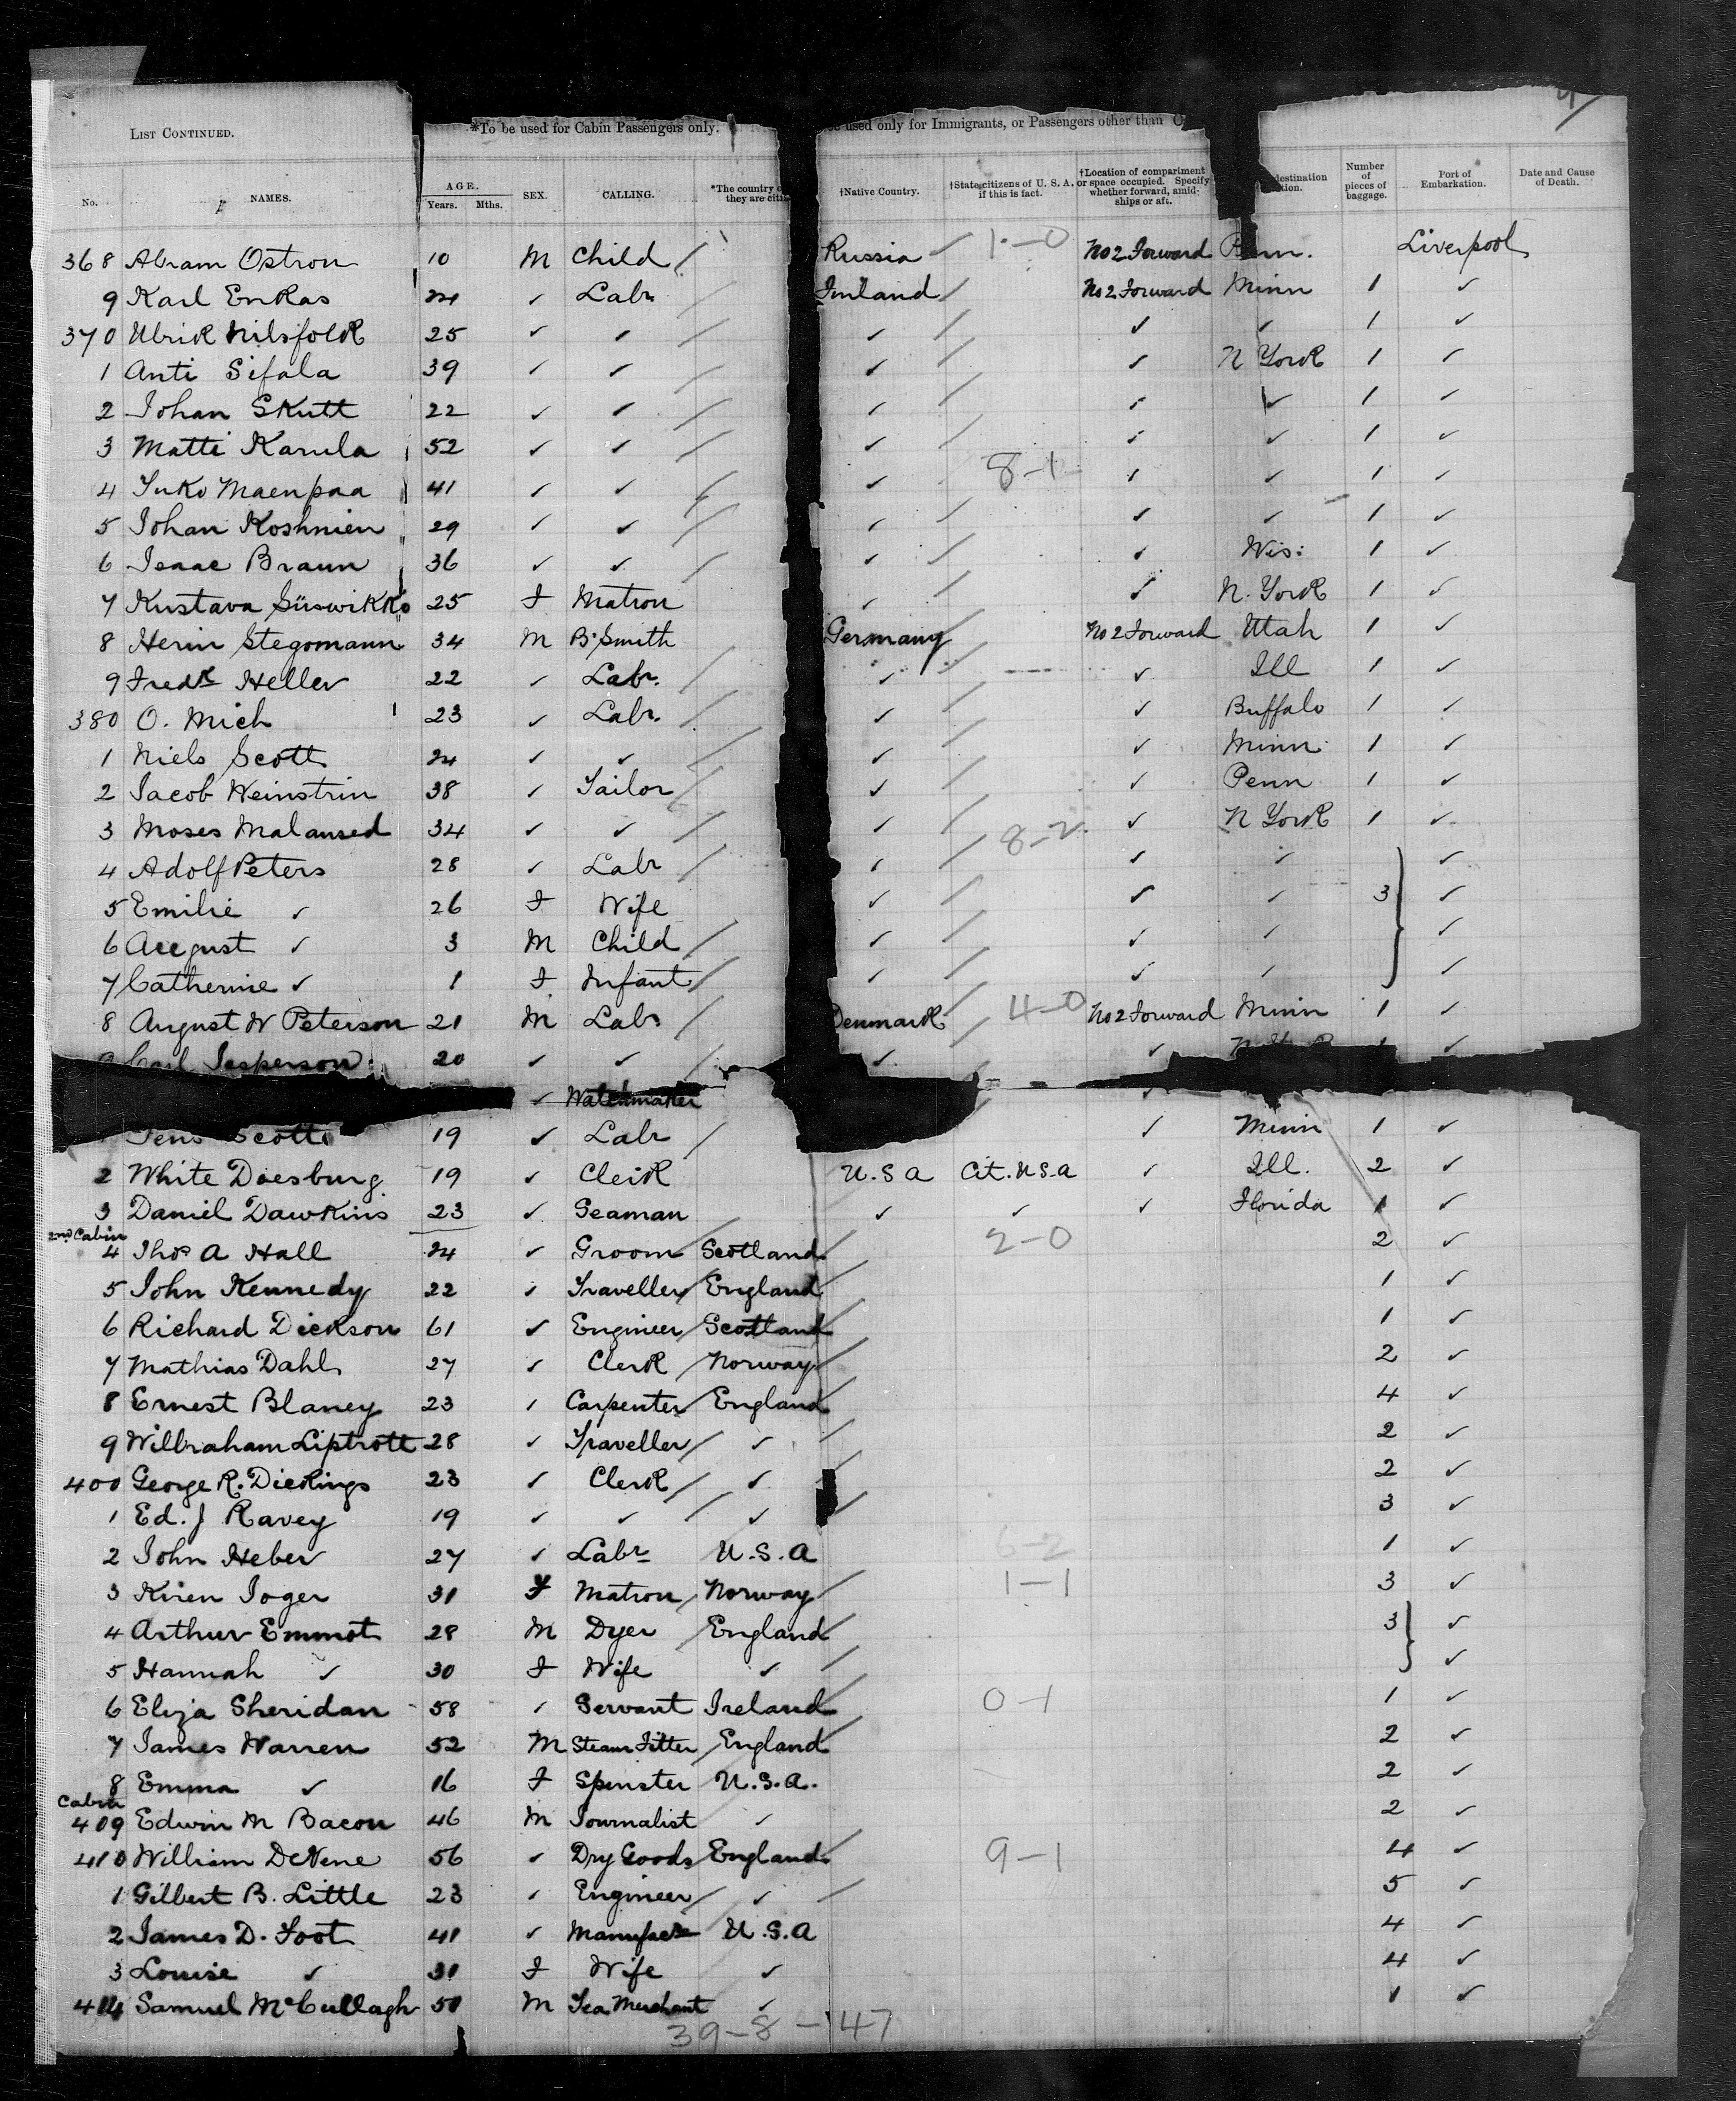 LIST CONTINUED.
*To be used for Cabin Passengers only.
used only for Immigrants, or Passengers other than
No. NAMES. AGE. Years. Mths. SEX. CALLING. *The country they are †Native Country. †State citizens of U. S. A. if this is fact. †Location of compartment or space occupied. Specify whether forward, amidships or aft. destination Number of pieces of baggage. Port of Embarkation. Date and Cause of Death.
368 Abram Ostron 10 M Child / Russia 1-0 No 2 Forward Liverpool
9 Karl Enkas 24 ✓ Labr / Finland / No 2 Forward Minn 1 ✓
370 Ulrik Nilsfolk 25 ✓ ✓ / ✓ / ✓ ✓ 1 ✓
1 Anti Sifala 39 ✓ ✓ / ✓ / ✓ N York 1 ✓
2 Johan Skutt 22 ✓ ✓ / ✓ / ✓ ✓ 1 ✓
3 Matti Karula 52 ✓ ✓ / ✓ / ✓ ✓ 1 ✓
4 Juko Maenpaa 41 ✓ ✓ / ✓ / 8-1 ✓ ✓ 1 ✓
5 Johan Koshnien 29 ✓ ✓ / ✓ / ✓ ✓ 1 ✓
6 Isaac Braun 36 ✓ ✓ / ✓ / ✓ Wis: 1 ✓
7 Kustava 25 F Matron ✓ / ✓ N. York 1 ✓
8 Herin Stegomann 34 M B. Smith Germany / No 2 Forward Utah 1 ✓
9 Fredk Heller 22 ✓ Labr. / ✓ / ✓ Ill 1 ✓
380 O. Mich 23 ✓ Labr. / ✓ / ✓ Buffalo 1 ✓
1 Niels Scott 24 ✓ ✓ / ✓ / ✓ Minn 1 ✓
2 Jacob Weinstrin 38 ✓ Tailor / ✓ / ✓ Penn 1 ✓
3 Moses Malansed 34 ✓ ✓ / ✓ / 8-2 ✓ N York 1 ✓
4 Adolf Peters 28 ✓ Labr / ✓ / ✓ ✓ ✓
5 Emilie ✓ 26 F Wife ✓ / ✓ ✓ 3 ✓
6 August ✓ 3 M Child / ✓ / ✓ ✓ ✓
7 Catherine ✓ 1 F Infant / ✓ / ✓ ✓ ✓
8 August W Peterson 21 M Labr / Denmark / 4-0 No 2 Forward Minn 1 ✓
Carl Jesperson 20 ✓ ✓ / ✓ ✓ 1 ✓
✓ Watchmaker ✓
Jens Scott 19 ✓ Labr / ✓ Minn 1 ✓
2 White Doesburg 19 ✓ Clerk U.S.A Cit. U.S.A ✓ Ill. 2 ✓
3 Daniel Dawkins 23 ✓ Seaman ✓ ✓ ✓ Florida 1 ✓
2nd Cabin
4 Thos A Hall 24 ✓ Groom Scotland / 2-0 2 ✓
5 John Kennedy 22 ✓ Traveller / England / 1 ✓
6 Richard Dickson 61 ✓ Engineer / Scotland / 1 ✓
7 Mathias Dahl 27 ✓ Clerk / Norway / 2 ✓
8 Ernest Blaney 23 ✓ Carpenter / England / 4 ✓
9 Wilbraham Liptrott 28 ✓ Traveller / ✓ / 2 ✓
400 George R. Dickings 23 ✓ Clerk / ✓ / 2 ✓
1 Ed. J Ravey 19 ✓ ✓ / ✓ / 3 ✓
2 John Heber 27 ✓ Labr U.S.A 6-2 1 ✓
3 Kiren Joger 31 F Matron / Norway / 1-1 3 ✓
4 Arthur Emmot 28 M Dyer / England / 3 ✓
5 Hannah ✓ 30 F Wife ✓ / ✓
6 Eliza Sheridan 58 ✓ Servant Ireland / 0-1 1 ✓
7 James Warren 52 M Steam Fitter / England / 2 ✓
8 Emma ✓ 16 F Spinster U.S.A. 2 ✓
Cabin
409 Edwin M Bacon 46 M Journalist ✓ 2 ✓
410 William DeVene 56 ✓ Dry Goods / England / 9-1 4 ✓
1 Gilbert B. Little 23 ✓ Engineer / ✓ / 5 ✓
2 James D. Foot 41 ✓ U.S.A 4 ✓
3 Louise ✓ 31 F Wife ✓ 4 ✓
414 Samuel McCullagh 50 M Tea Merchant ✓ 1 ✓
39-8-147